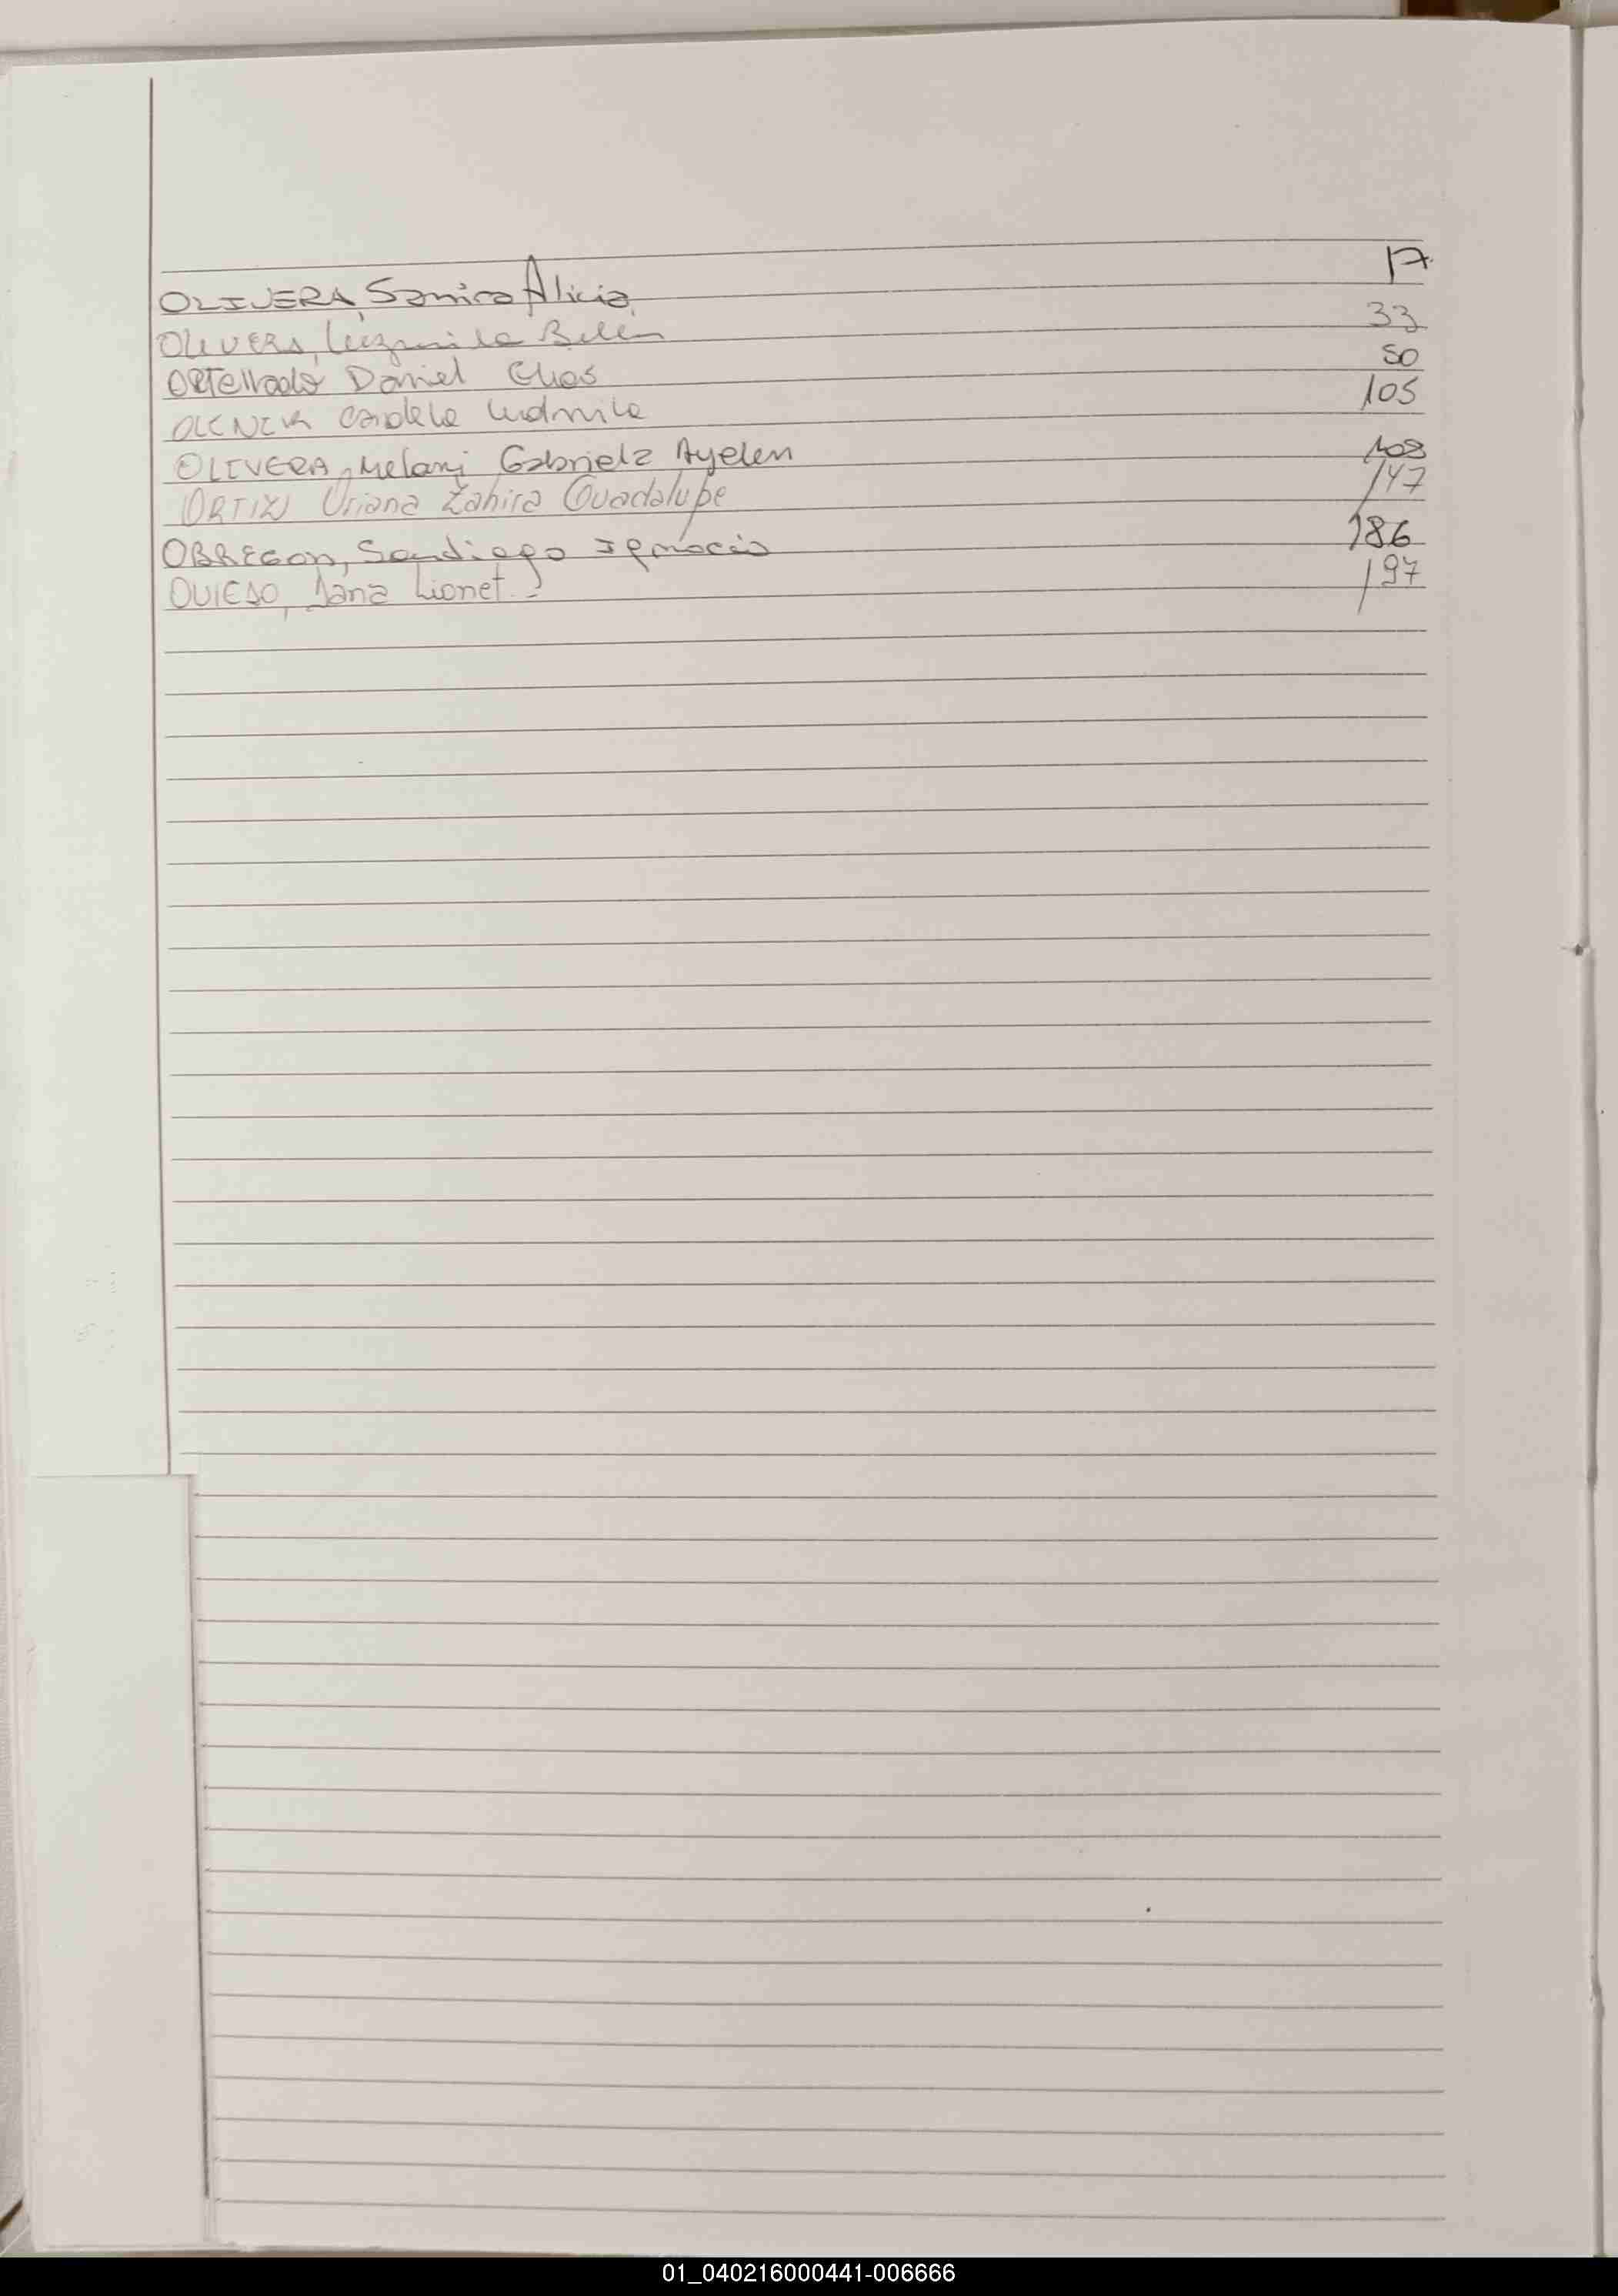 OLIVERA, Samira Alicia 17
OLIVERA, Luzmila Belen 33
ORTellado Daniel Elias 50
Candela Ludmila 105
OLIVERA, Melani Gabriela Ayelen 108
ORTIZ Uriana Zahira Guadalupe 147
OBREGON, Santiago Ignacio 186
OVIEDO, Lionet 197
01_040216000441-006666